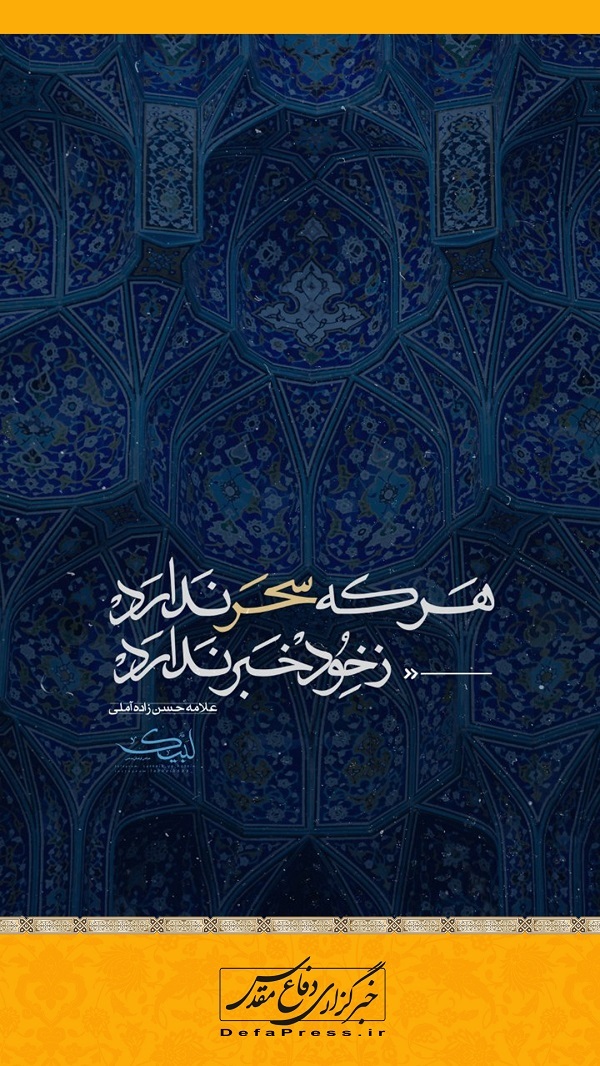 هَر که سحَر ندارَد
» زخود خبر ندارَد
علامه حسن زاده آملی
لبیک
خبرگزاری دفاع مقدس
DefaPress.ir